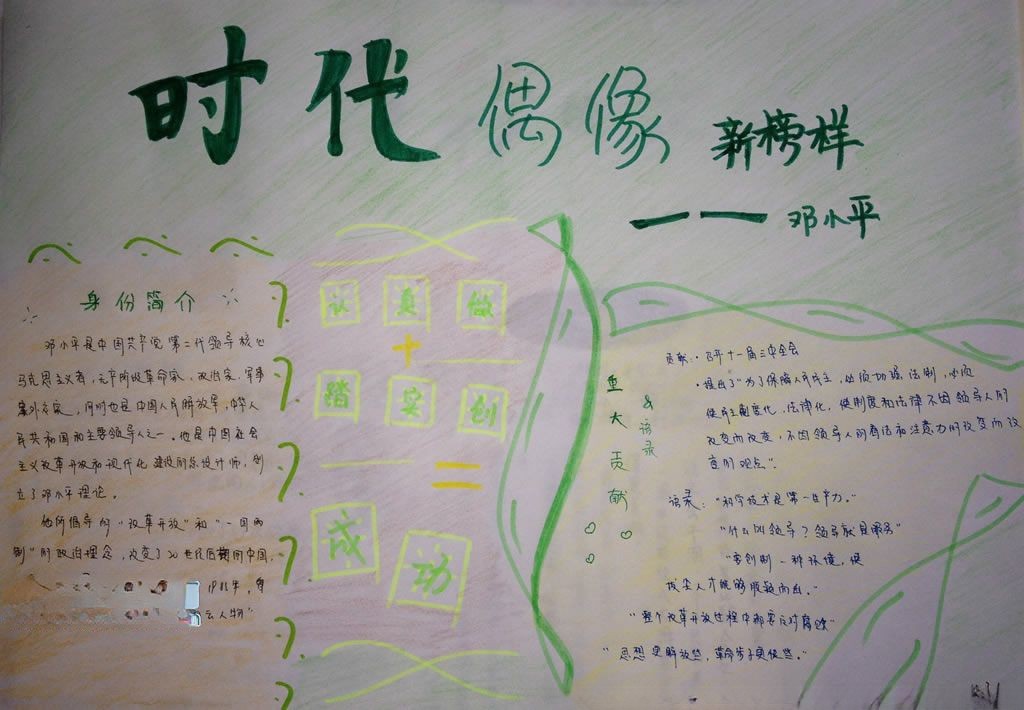 时代偶像 新榜样
—— 邓小平
身份简介
邓小平是中国共产党第二代领导核心
马克思主义者，无产阶级革命家，政治家，军事
家外交家，同时也是中国人民解放军，中华人
民共和国的主要领导人之一。他是中国社会
主义改革开放和现代化建设的总设计师，创
立了邓小平理论。
他所倡导的“改革开放”和“一国两
制”的政治理念，改变了20世纪后期的中国，
云人物”
认真做
+
踏实创
=
成功
重大贡献
&语录
贡献：·召开十一届三中全会
·提出了“为了保障人民民主，必须加强法制，必须
使民主制度化，法律化，使制度和法律不因领导人的
改变而改变，不因领导人的看法和注意力的改变而改
变的观点”.
语录：“科学技术是第一生产力。”
“什么叫领导？领导就是服务”
“要创制一种环境，使
拔尖人才能够脱颖而出。”
“整个改革开放过程中都要反对腐败”
“思想更解放些，革命步子更快些。”